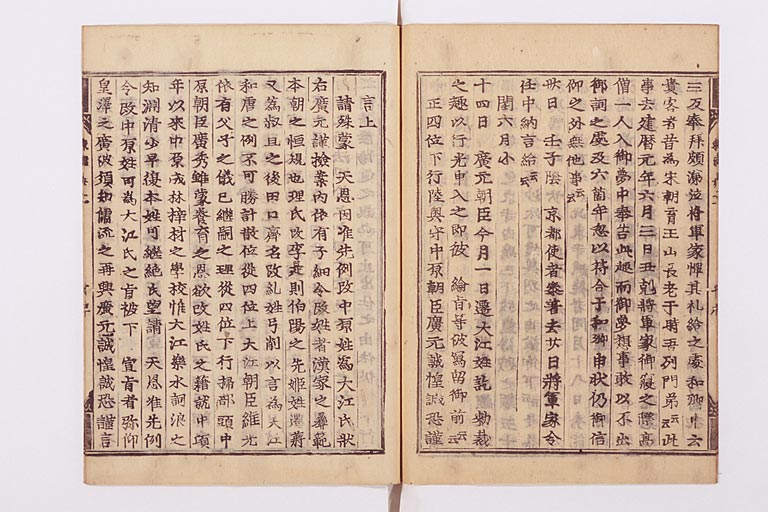 三反奉拜頗涕泣將軍家憚其礼給之處和卿申云
貴客者昔為宋朝育王山長老于時吾列門弟云云此
事去建暦元年六月三日丑剋將軍家御寢之際高
僧一人入御夢中奉告此趣而御夢想事敢以不出
御詞之處及六箇年忽以符合于和卿申狀仍御信
仰之外無他事云云
卅日 壬子陰 京都使者參著去廿日將軍家令
任中納言給云云
閏六月小
十四日 廣元朝臣今月一日遷大江姓訖 勅裁
之趣以行光申入之即彼 綸旨等被寫留御前云云
正四位下行陸奥守中原朝臣廣元誠惶誠恐謹
言上
請殊蒙 天恩因准先例改中原姓為大江氏狀
右廣元謹撿案内依有子細令改姓者漢家之彝範
本朝之恒規也理氏改李是則伯陽之先姫姓遷蔣
又為叔旦之後田口齊名改紀姓弓削以言為大江
和唐之例不可勝計散位從四位上大江朝臣維光
依有父子之儀已繼嗣之理從四位下行掃部頭中
原朝臣廣秀雖蒙養育之恩欲改姓氏之籍就中頃
年以來中原成林梓材之學挍惟大江樂水詞浪之
知淵清少早復本姓可繼絶氏望請 天恩准先例
令改中原姓可為大江氏之旨被下 宣旨者弥仰
皇澤之廣彼須勤儒流之再興廣元誠惶誠恐謹言